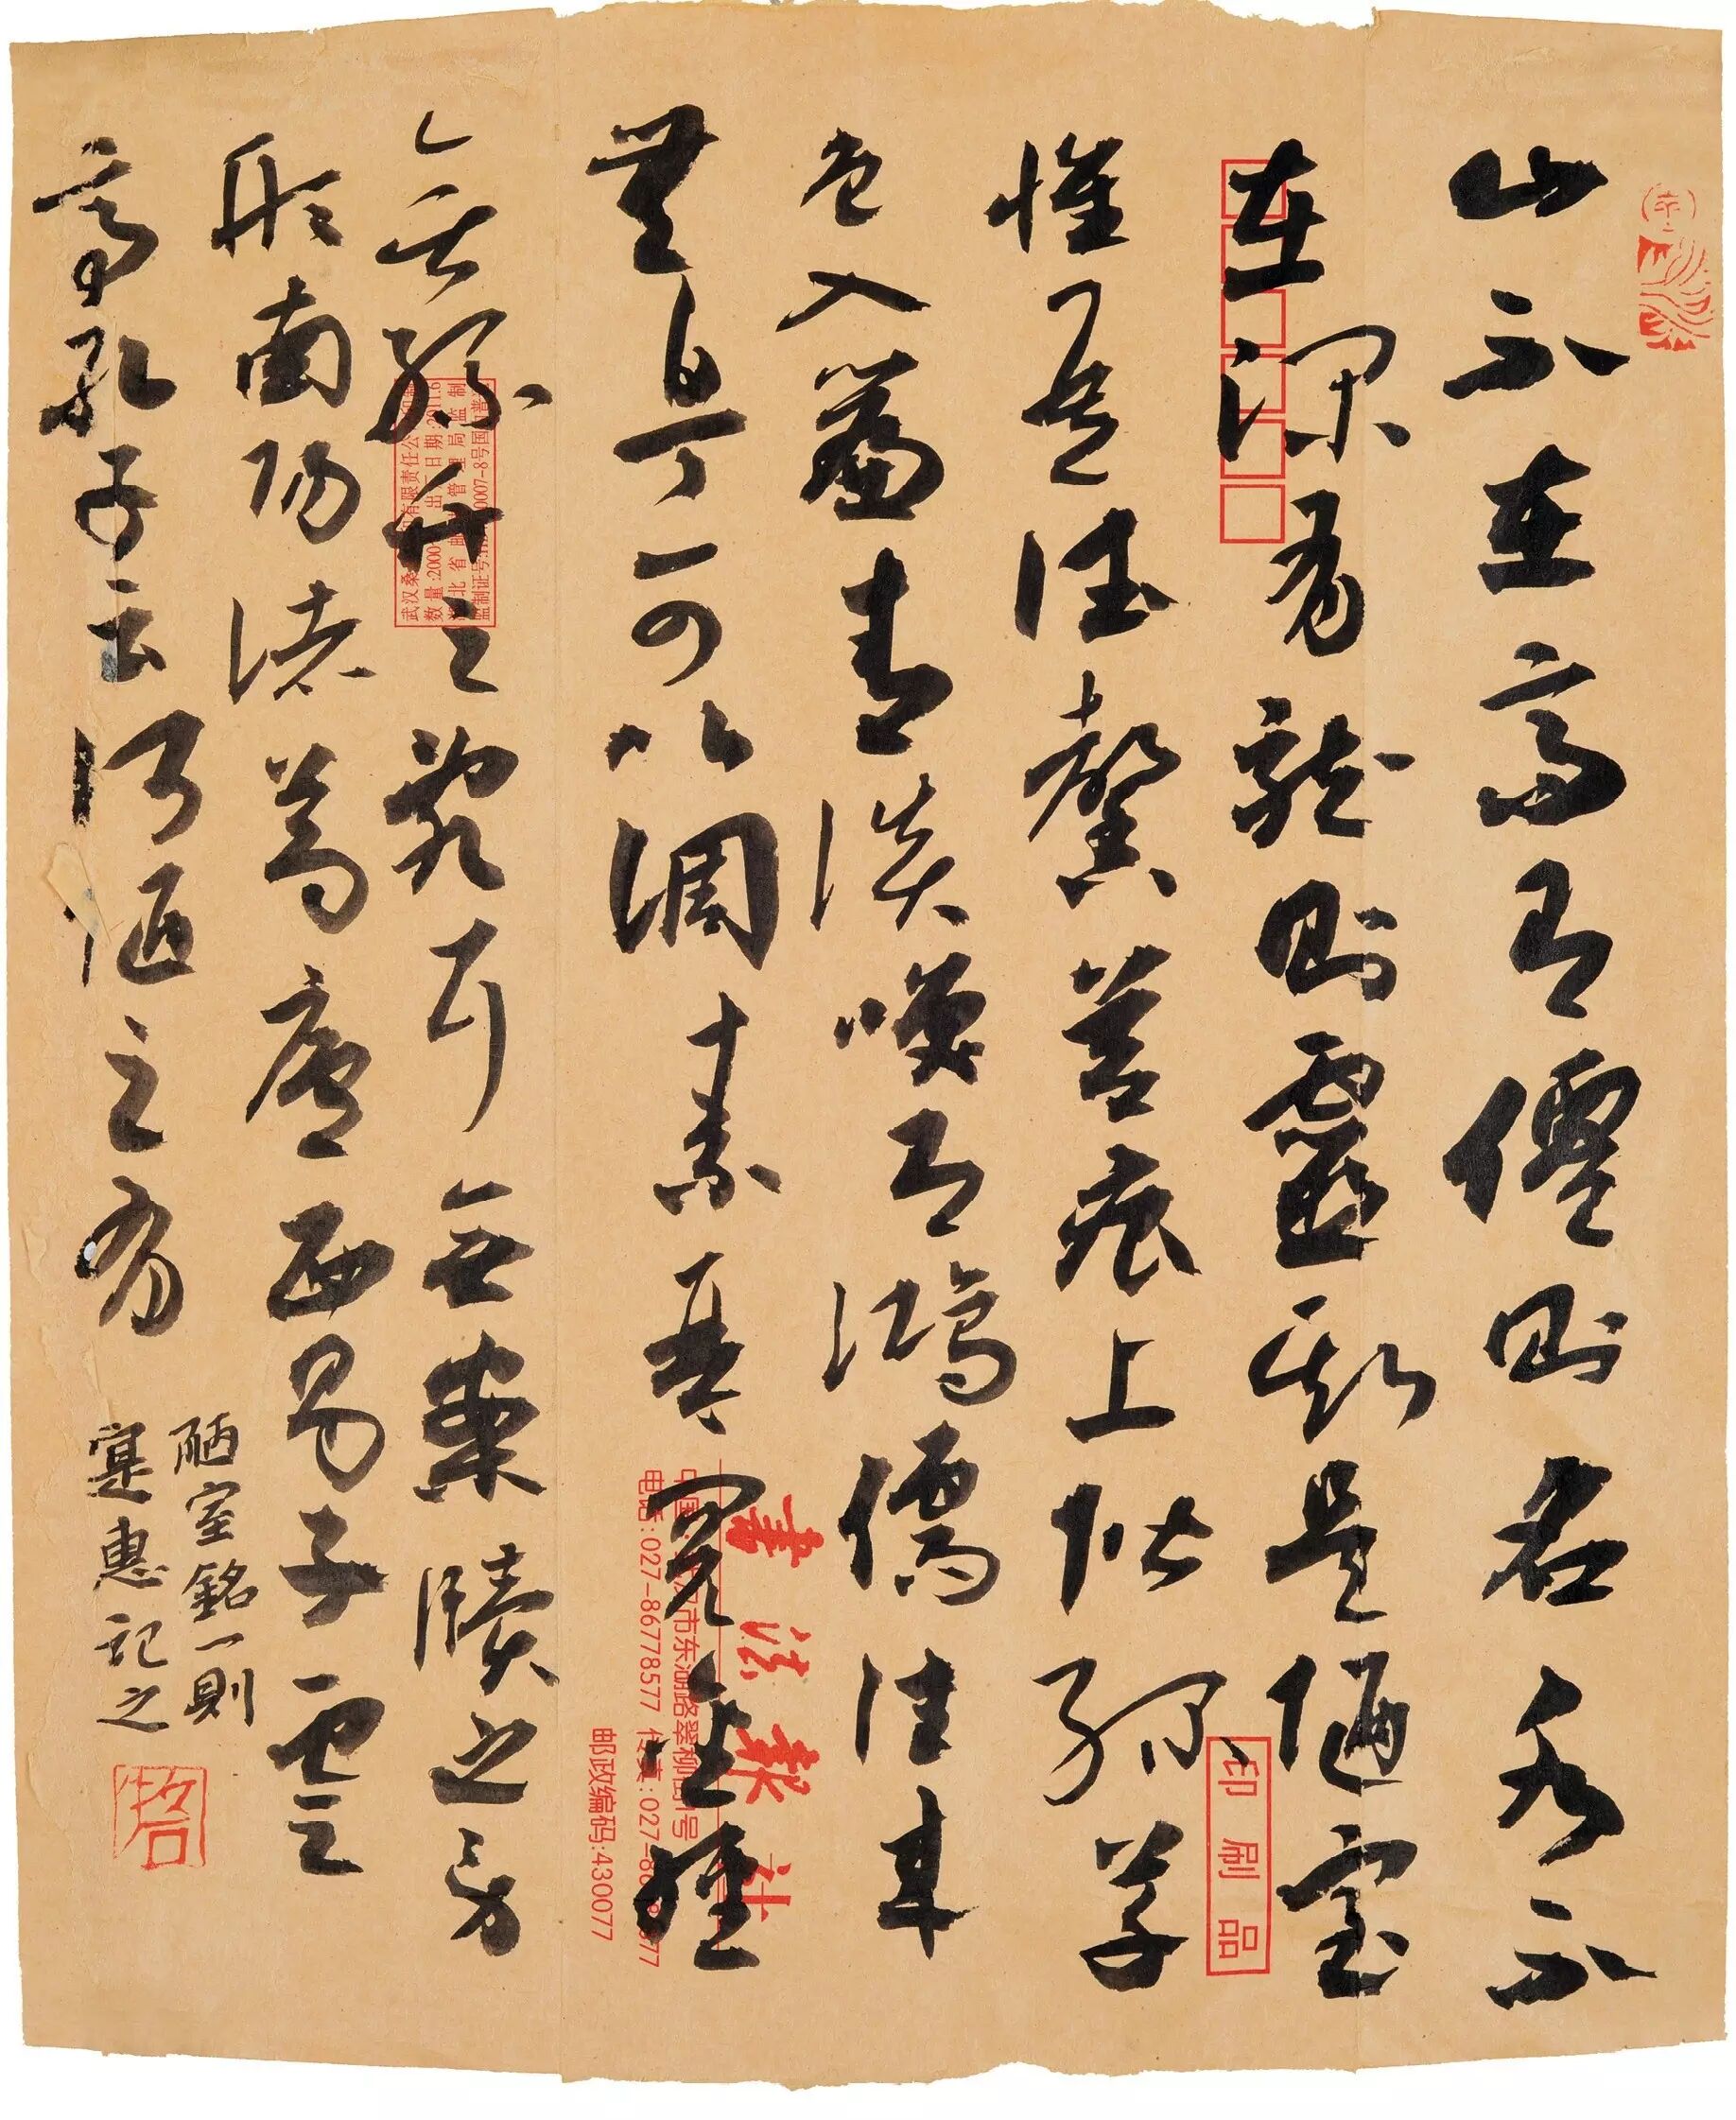 山不在高有僊則名水不
在深有龍則靈斯是陋室
惟吾德馨苔痕上階綠草
色入簾青談咲有鴻儒往來
無白丁可以調素琴閱金經
無絲竹之亂耳無案牘之勞
形南陽諸葛廬西蜀子雲之
亭孔子云何陋之有
陋室銘一則
寔惠記之
書法報社
中国 市东湖路翠柳街1号
电话:027-86778577 传真:027-86 577
邮政编码:430077
印刷品
武汉桑 有限责任公
数量:2000 出厂日期:2011.6
湖北省邮政管理局监制
监制证号: 0007-8号国内普